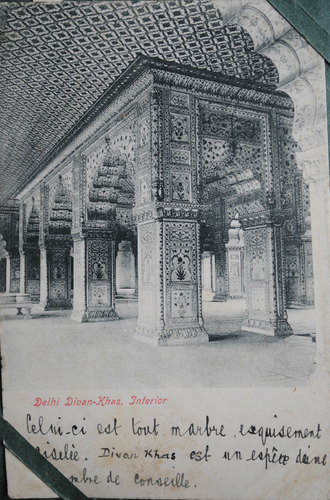 Delhi Divan-Khas, Interior.
Celui-ci est tout marbre, exquisement
ciselée. Divan Khas est un espèce de
chambre de conseille.